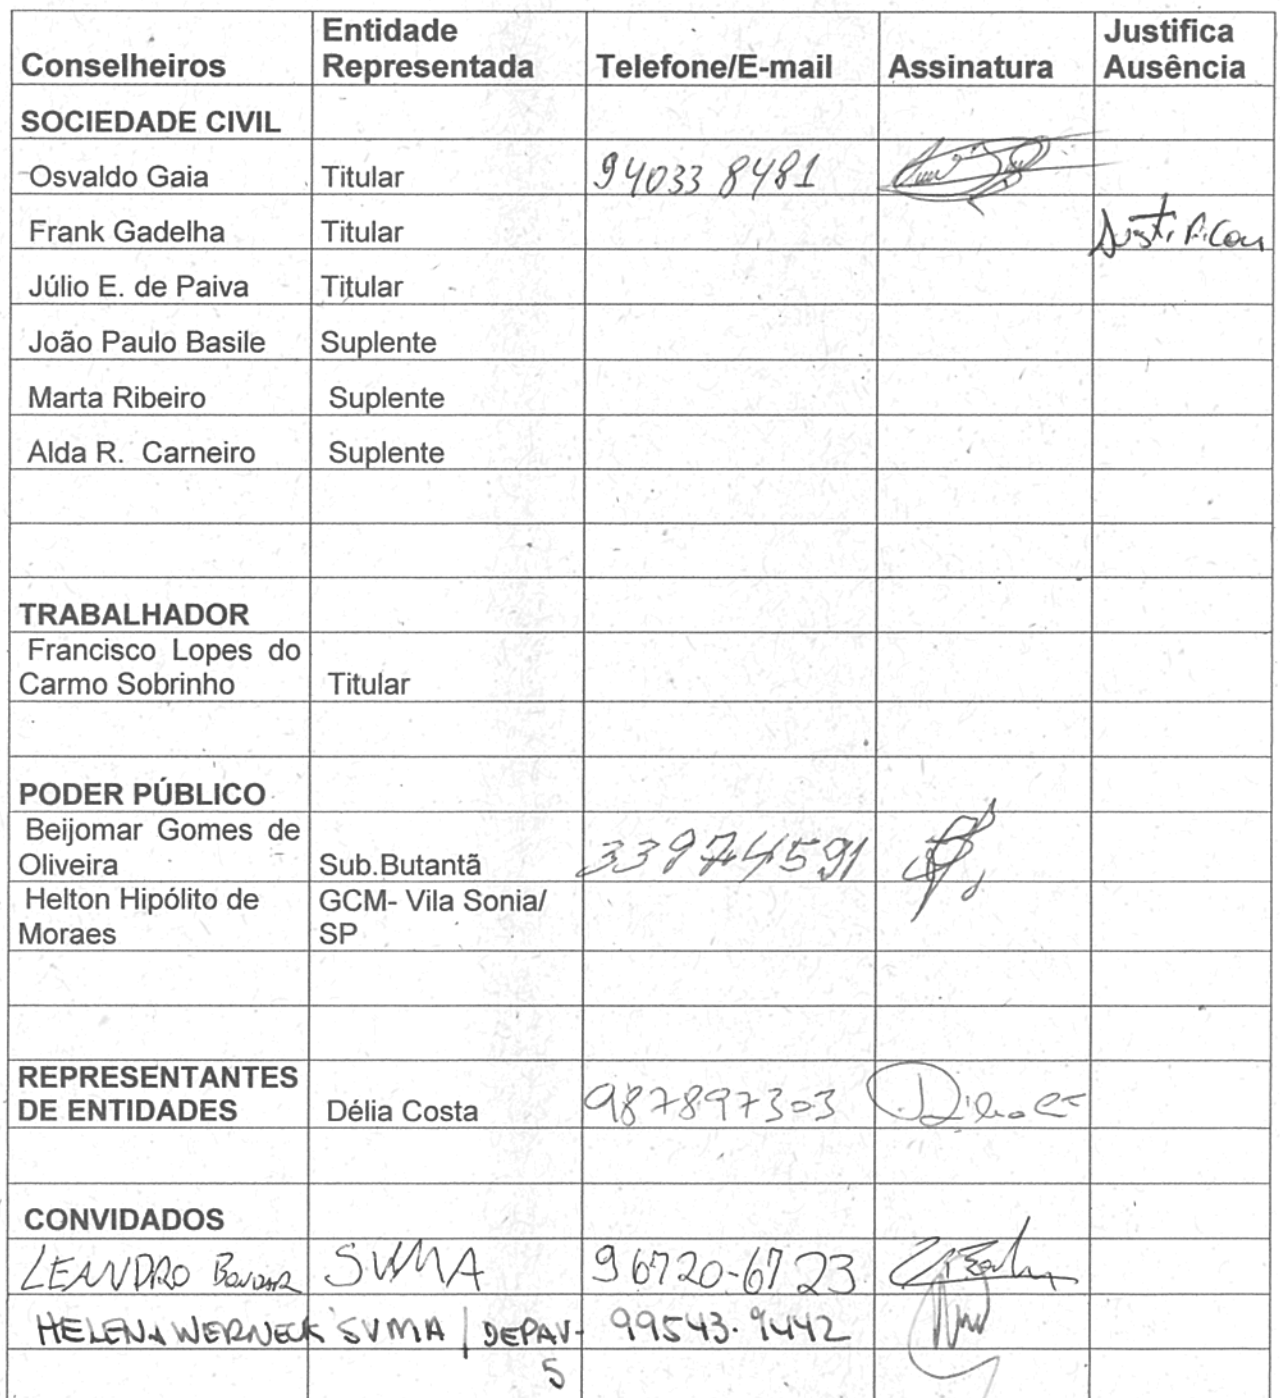 Conselheiros Entidade Representada Telefone/E-mail Assinatura Justifica Ausência
SOCIEDADE CIVIL
Osvaldo Gaia Titular 94033 8481
Frank Gadelha Titular Justificou
Júlio E. de Paiva Titular
João Paulo Basile Suplente
Marta Ribeiro Suplente
Alda R. Carneiro Suplente
TRABALHADOR
Francisco Lopes do
Carmo Sobrinho Titular
PODER PÚBLICO
Beijomar Gomes de
Oliveira Sub.Butantã 33974591
Helton Hipólito de GCM- Vila Sonia/
Moraes SP
REPRESENTANTES
DE ENTIDADES Délia Costa 987897303
CONVIDADOS
LEANDRO SVMA 96720-6723
HELENA WERNECK SVMA | DEPAV- 99543.9442
5